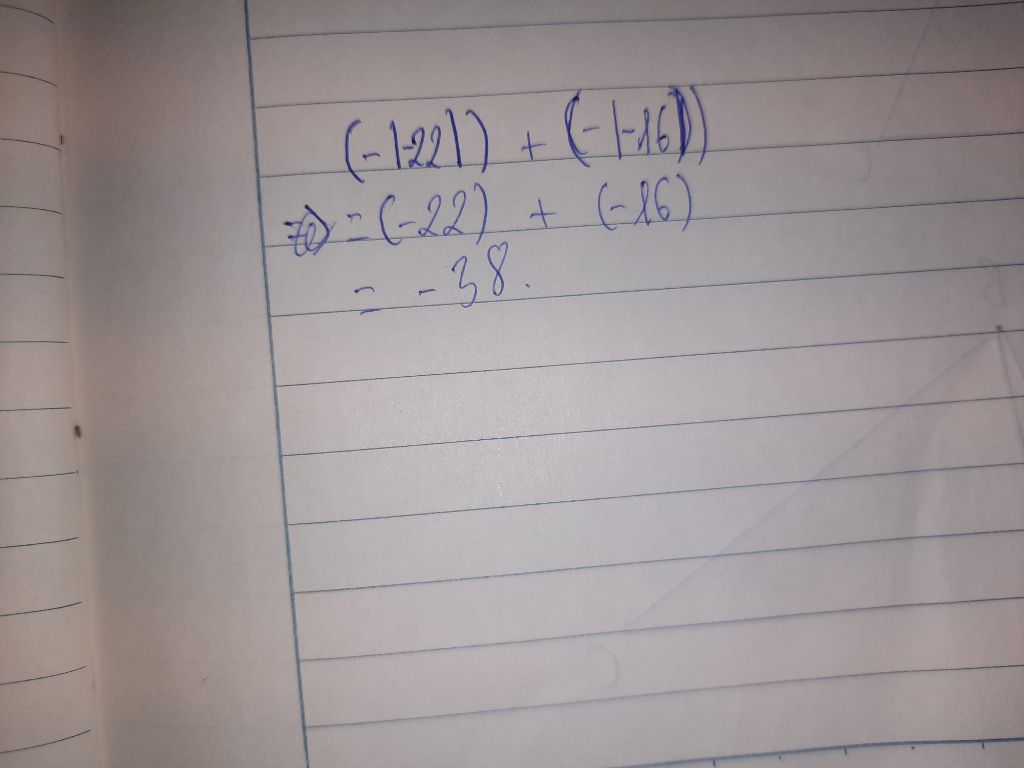 (-|-22|) + (-|-16|)
= (-22) + (-16)
= -38.